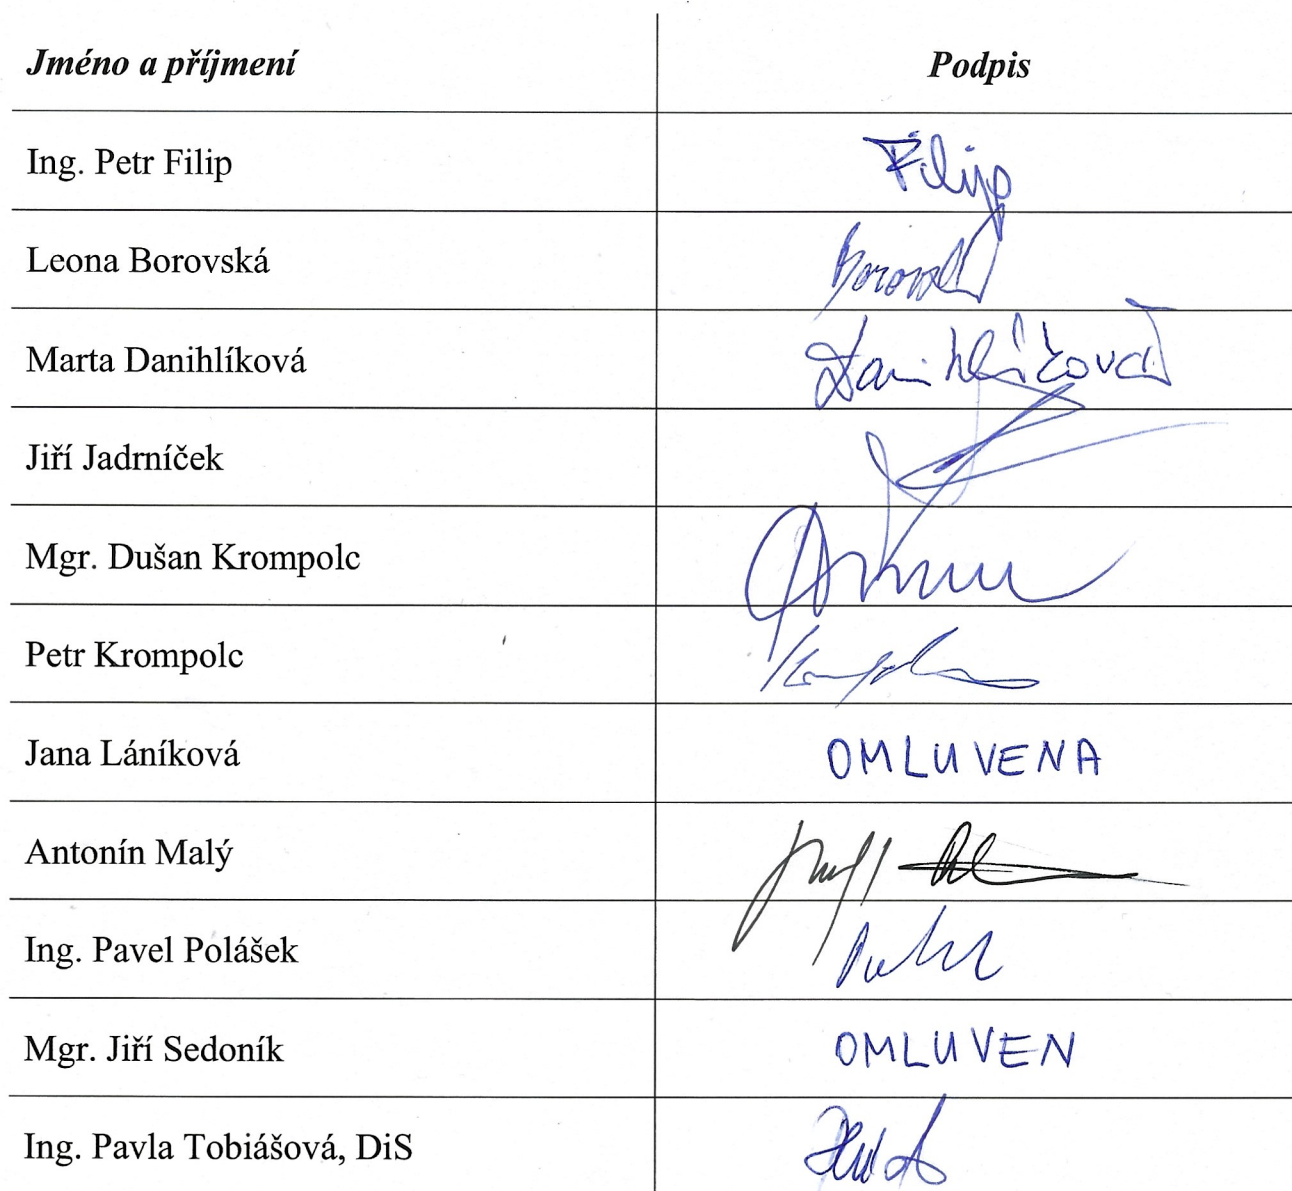 Jméno a příjmení Podpis
Ing. Petr Filip Filip
Leona Borovská
Marta Danihlíková Danihlíková
Jiří Jadrníček
Mgr. Dušan Krompolc
Petr Krompolc
Jana Láníková OMLUVENA
Antonín Malý
Ing. Pavel Polášek
Mgr. Jiří Sedoník OMLUVEN
Ing. Pavla Tobiášová, DiS